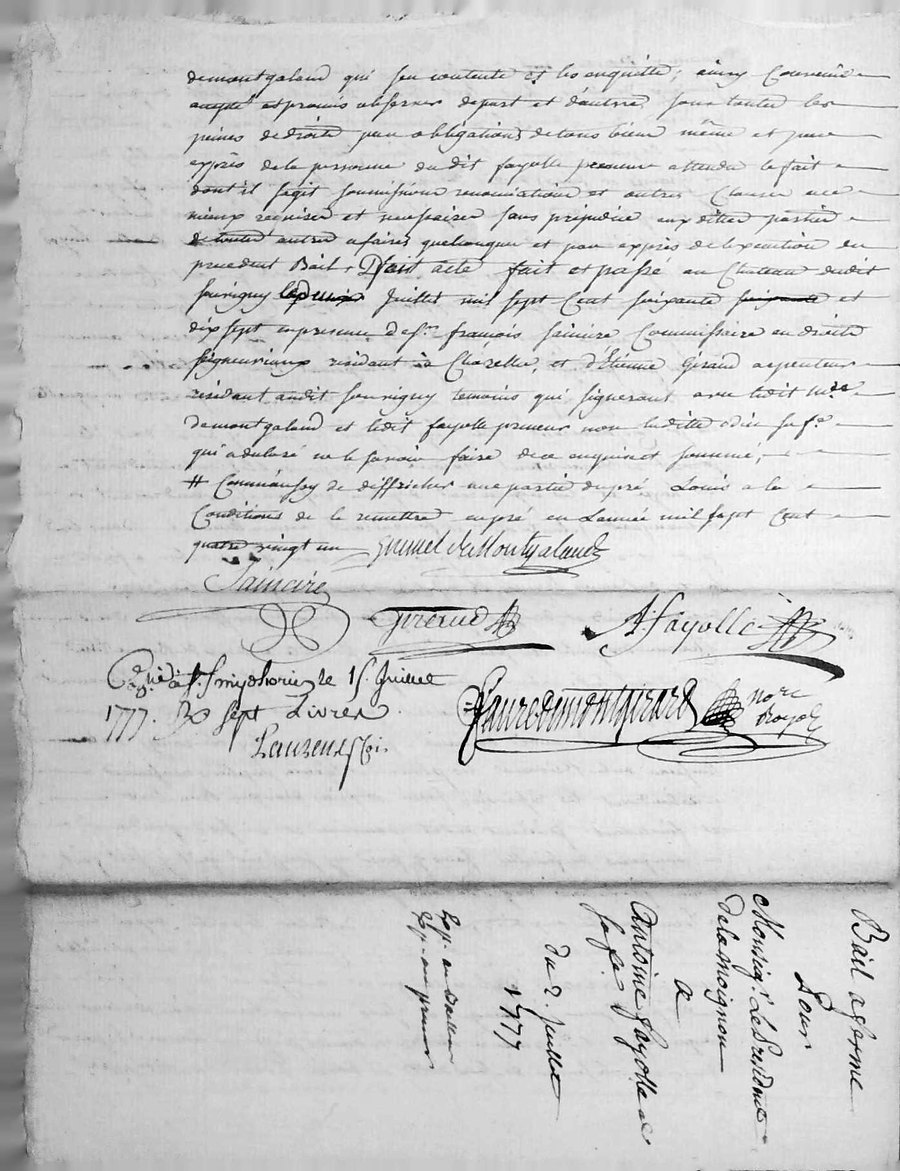 demontgaland qui sen contente et les enquitte; ainsy Convenû
accepté et promis observer depart et dautre sous toutes les
peines de droits par obligations detous biens même et par
exprès de la personne dudit fayolle preneur attendu le fait
dont il sagit soumissions renonciations et autres Clauses
mieux requises et necessaires sans préjudice aux dittes parties
de toutes autres afaires quelconques et par exprès de lexecution du
precedent Bail, Dont acte fait et passé au Chateau dudit
souvigny le Juillet mil sept Cent soixante et
dix sept en presence de sr. françois saincire Commissaire en droits
seigneuriaux residant à Chazelle, et d'Etienne Girard arpenteur
residant audit souvigny temoins qui signeront avec ledit
demontgaland et ledit fayolle preneur non laditte odin sa fe.
qui a declaré ne le savoir faire de ce enquis et sommé,
# de deffricher une partie dupré Louis a la
Conditions de le remettre enpré en Lannée mil sept Cent
quatre vingt un Grumel de Montgaland
Saincire
Girard
A. fayolle
à St. Simphorien le 15 Juillet
1777. sept Livres
Laurenson
Faure de montgirard nore
Royal
Bail a ferme
Pour
Monseigr. Le Président
delamoignon
a
Antoine fayolle et
sa fe.
du 2 Juillet
1777
Exp. au Bailleur
Exp. au preneur